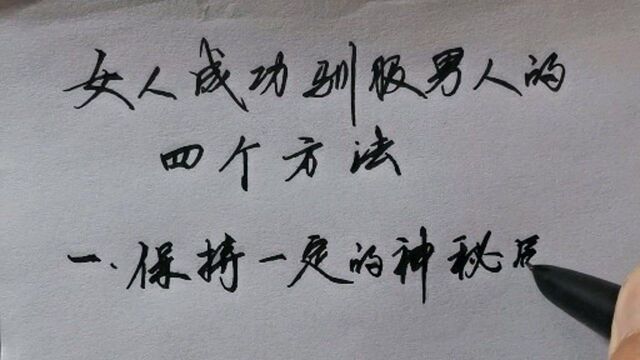 女人成功驯服男人的
四个方法
一.保持一定的神秘